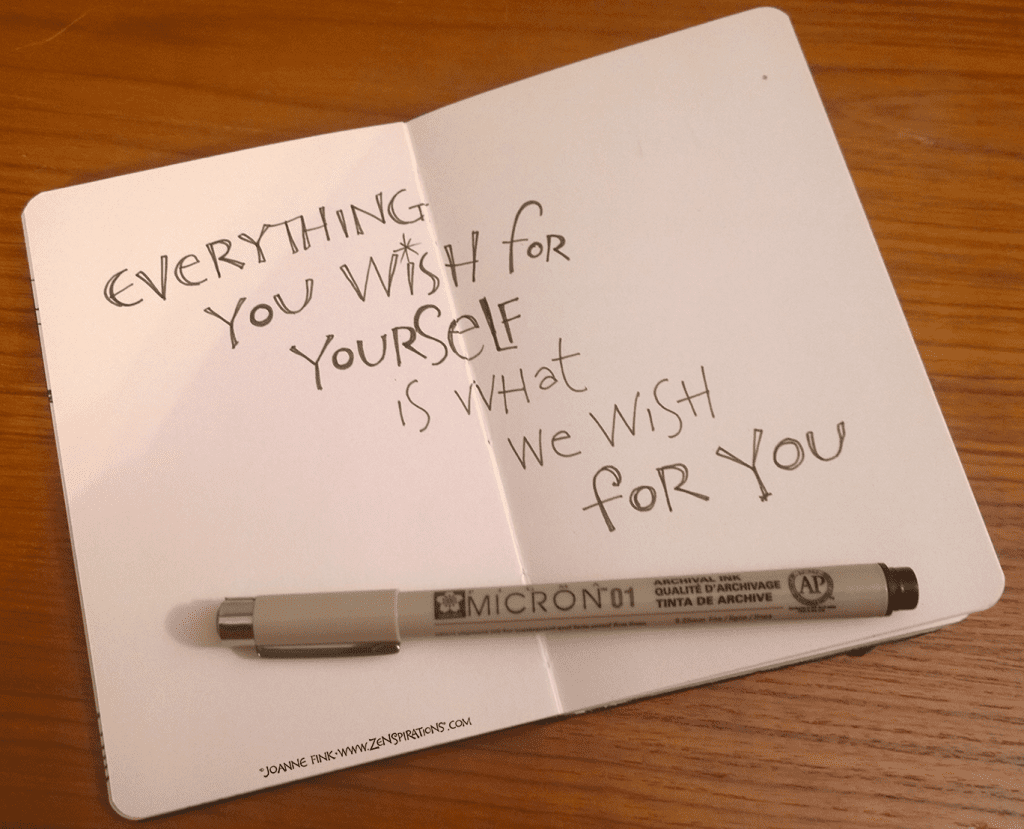 EVERYTHING
YOU WISH FOR
YOURSELF
is WHat
we WiSH
foR YOU
MICRON 01
ARCHIVAL INK
QUALITÉ D'ARCHIVAGE
TINTA DE ARCHIVE
AP
JOANNE FINK·WWW.ZENSPIRATIONS.COM